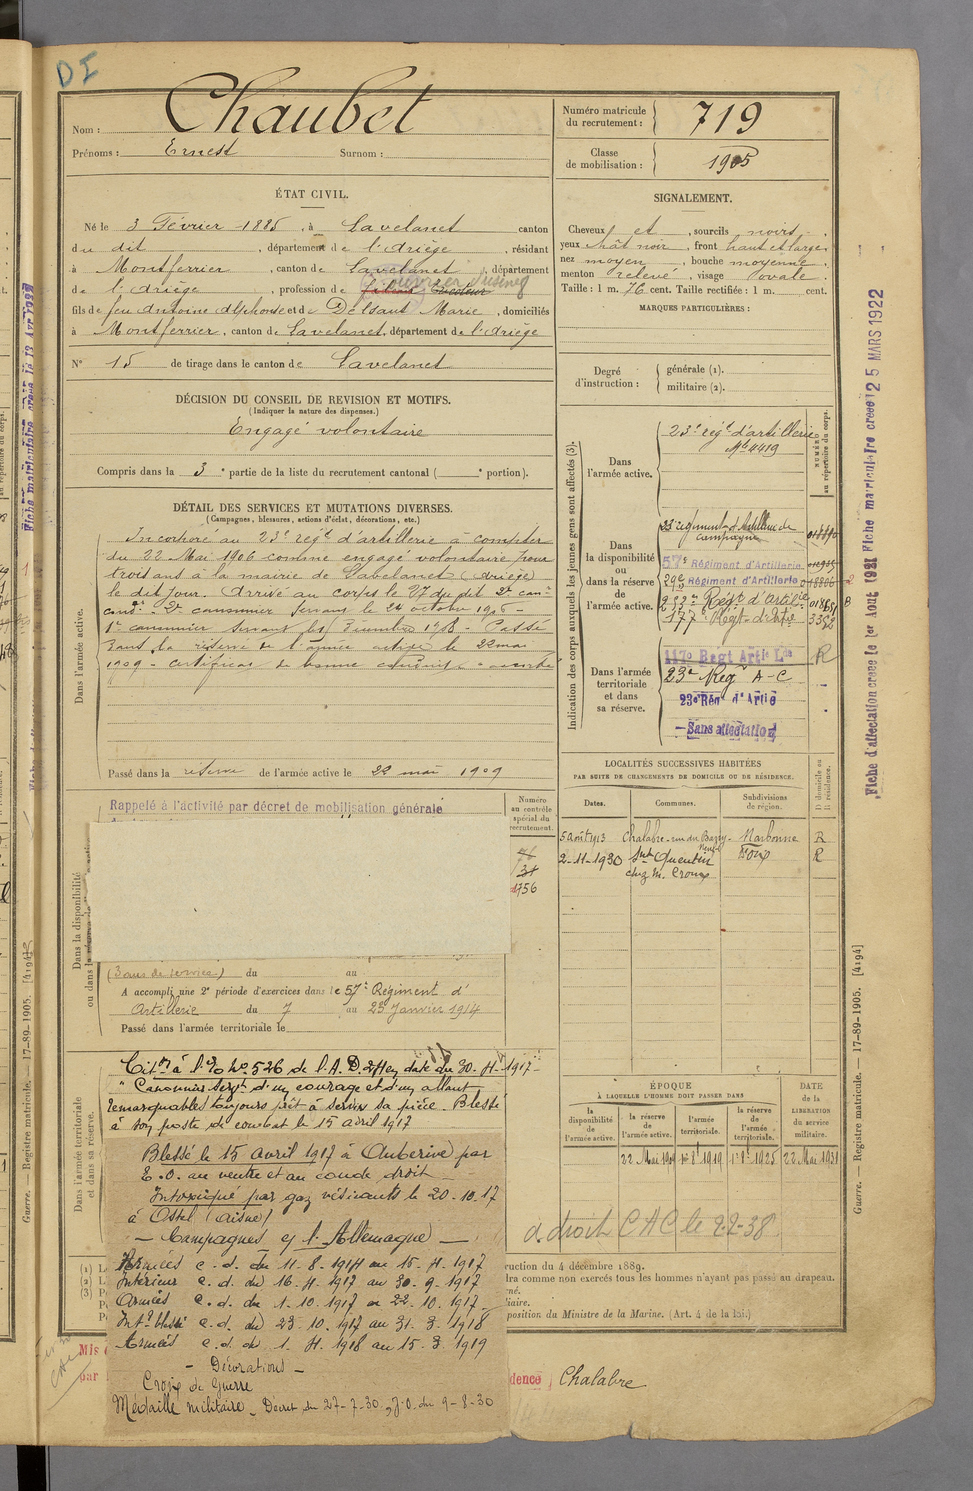 D I
Nom : Chaubet
Prénoms : Ernest Surnom :
Numéro matricule du recrutement : 719
Classe de mobilisation : 1905
ÉTAT CIVIL.
Né le 3 Février 1885, à Lavelanet canton
du dit, département de l'Ariège, résidant
à Montferrier, canton de Lavelanet, département
de l'Ariège, profession de ouvrier d'usine
fils de feu Antoine Alphonse et de Delsaut Marie, domiciliés
à Montferrier, canton de Lavelanet, département de l'Ariège
N° 15 de tirage dans le canton de Lavelanet
DÉCISION DU CONSEIL DE REVISION ET MOTIFS.
(Indiquer la nature des dispenses.)
Engagé volontaire
Compris dans la 3e partie de la liste du recrutement cantonal ( e portion).
DÉTAIL DES SERVICES ET MUTATIONS DIVERSES.
(Campagnes, blessures, actions d'éclat, décorations, etc.)
Dans l'armée active.
Incorporé au 23e régt d'artillerie à compter
du 22 Mai 1906 comme engagé volontaire pour
trois ans à la mairie de Lavelanet (Ariège)
le dit jour. Arrivé au corps le 27 du dit 2e can-
2e canonnier servant le 24 octobre 1906 -
1er canonnier servant le 1908 - Passé
dans la réserve de l'armée active le 22 mai
1909 - Certificat de bonne conduite accordé
Passé dans la réserve de l'armée active le 22 mai 1909
Rappelé à l'activité par décret de mobilisation générale
Numéro au contrôle spécial du recrutement.
31
1756
Dans la disponibilité
(3 ans de service) du au
A accompli une 2e période d'exercices dans le 57e Régiment d'
Artillerie du 7 au 23 Janvier 1914
Passé dans l'armée territoriale le
Dans l'armée territoriale et dans sa réserve.
Citon à l'O No 526 de l'A.D. en date du 30-4-1917-
" Canonnier servt d'un courage et d'un allant
remarquables toujours prêt à servir sa pièce. Blessé
à son poste de combat le 15 avril 1917
Blessé le 15 avril 1917 à Auberive par
E.O. au ventre et au coude droit
Intoxiqué par gaz vésicants le 20-10-17
à Ostel (Aisne)
- Campagnes c/ l'Allemagne -
Armées c.d. du 11-8-1914 au 15-4-1917
Intérieur c.d. du 16-4-1917 au 30-9-1917
Armées c.d. du 1-10-1917 au 22-10-1917
Intr blessé c.d. du 23-10-1917 au 31-3-1918
Armées c.d. du 1-4-1918 au 15-3-1919
- Décorations -
Croix de Guerre
Médaille militaire - Décret du 27-7-30, J.O. du 9-8-30
SIGNALEMENT.
Cheveux et, sourcils noirs
yeux chât noir, front haut et large
nez moyen, bouche moyenne
menton relevé, visage ovale
Taille : 1 m. 76 cent. Taille rectifiée : 1 m. cent.
MARQUES PARTICULIÈRES :
Degré d'instruction : générale (1).
militaire (2).
Indication des corps auxquels les jeunes gens sont affectés (3).
NUMÉRO au répertoire du corps.
Dans l'armée active. 23e régt d'artillerie
No 4419
Dans la disponibilité ou dans la réserve de l'armée active.
23e régiment d'Artillerie de campagne
57e Régiment d'Artillerie
29e Régiment d'Artillerie
233e Regt d'Artie
177e Régt d'Artie
Dans l'armée territoriale et dans sa réserve.
117e Regt Artie Lde R
23e Régt A-C
23e Régt d'Artie
Sans affectation
LOCALITÉS SUCCESSIVES HABITÉES
PAR SUITE DE CHANGEMENTS DE DOMICILE OU DE RÉSIDENCE.
Dates. Communes. Subdivisions de région. D domicile ou R résidence.
5 août 1913 Chalabre - Narbonne R
2-11-1930 St Quentin R
chez M. Croux
ÉPOQUE
À LAQUELLE L'HOMME DOIT PASSER DANS
DATE de la LIBÉRATION du service militaire.
la disponibilité de l'armée active.
la réserve de l'armée active.
l'armée territoriale.
la réserve de l'armée territoriale.
22 Mai 1909 1919 1925 22 Mai 1931
a droit CAC le 2-2-38
ruction du 4 décembre 1889.
dra comme non exercés tous les hommes n'ayant pas passé au drapeau.
position du Ministre de la Marine. (Art. 4 de la loi.)
Mis
par
dence Chalabre
Fiche d'affectation créée le 1er Août 1921 Fiche matriculaire créée 25 MARS 1922
Guerre. — Registre matricule. — 17-89-1905. [4194]
Guerre. — Registre matricule. — 17-89-1905. [4194]